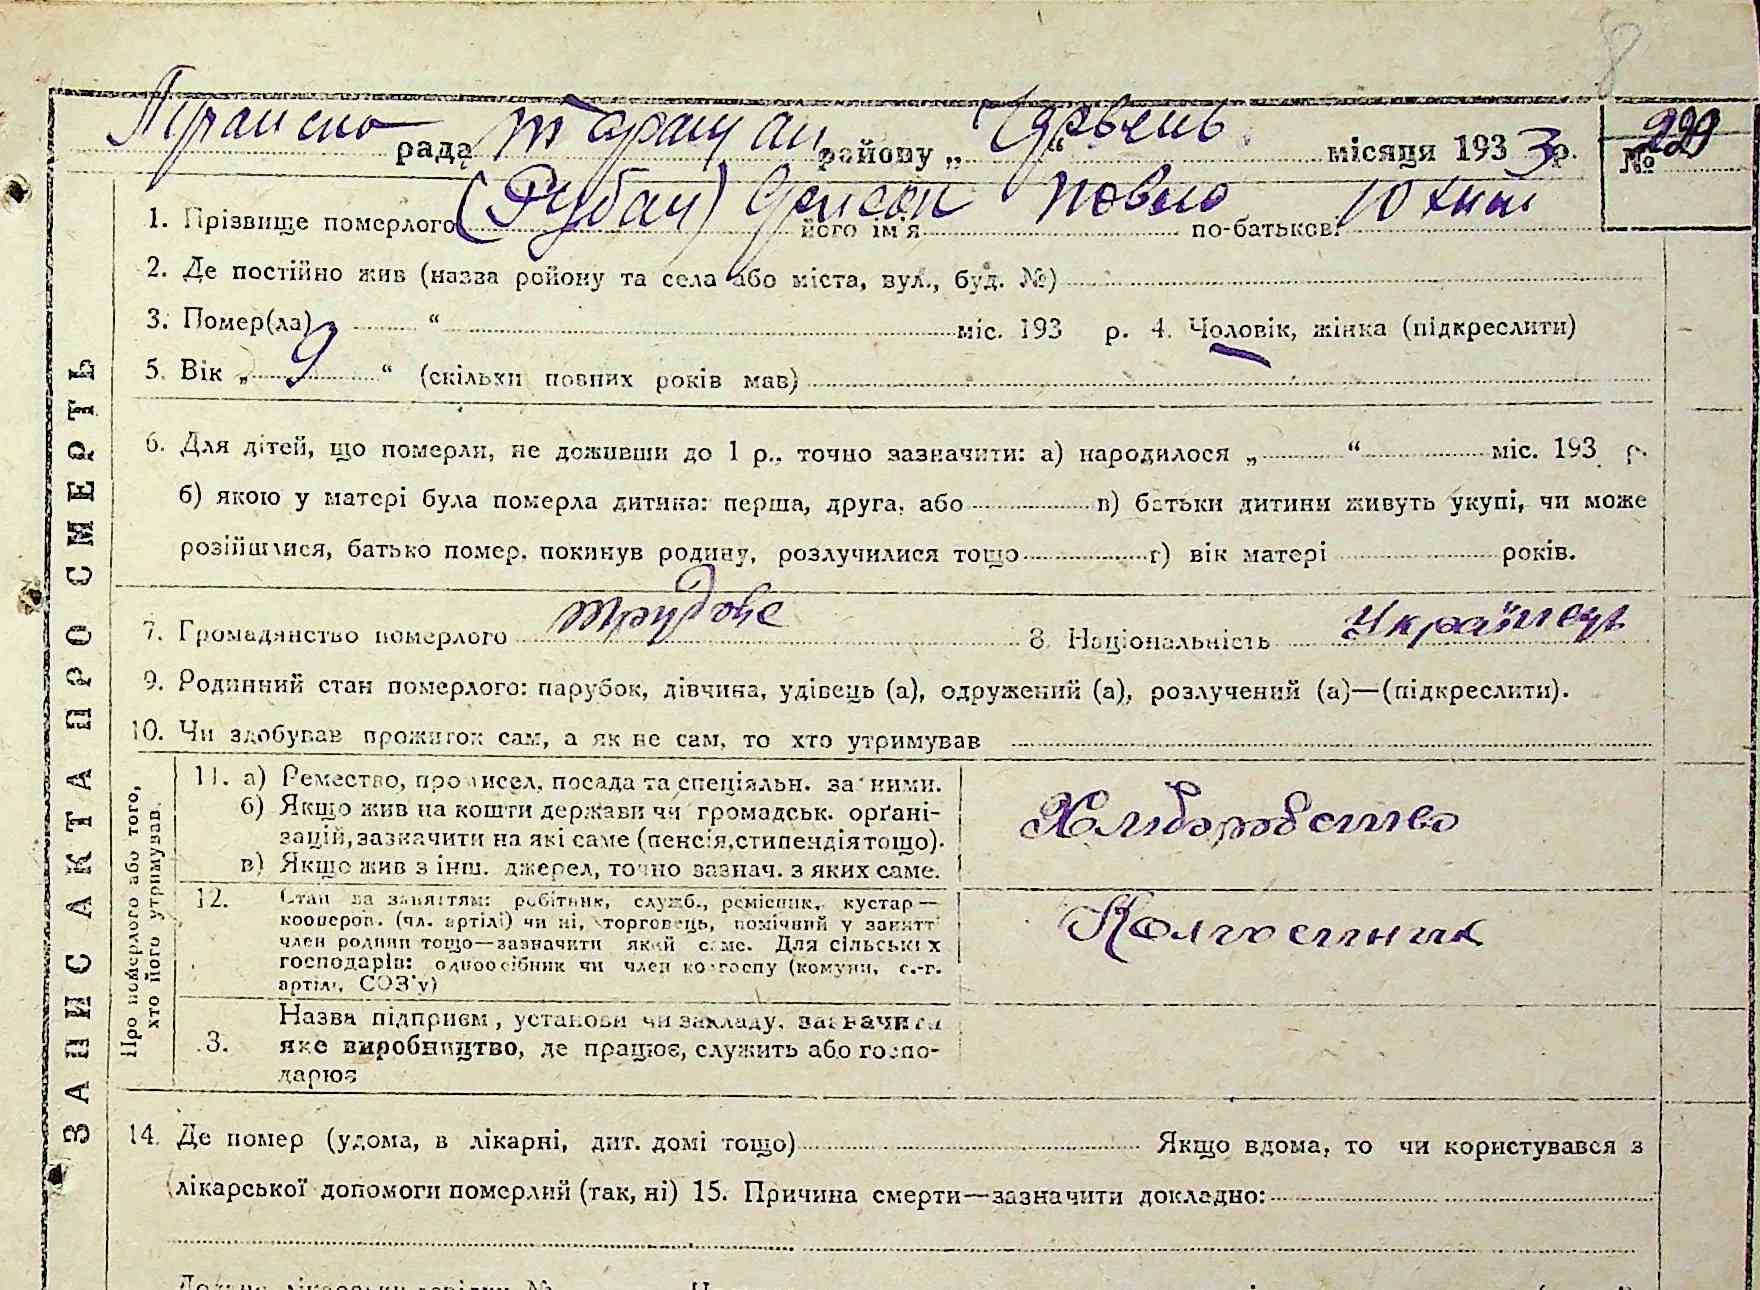 8
рада Таращан району „ Червень “ місяця 1933 р. № 229
1. Прізвище померлого (Рубан) його ім'я Павло по-батькові Юхим
2. Де постійно жив (назва району та села або міста, вул., буд. №)
3. Помер(ла) “ міс. 193 р. 4. Чоловік, жінка (підкреслити)
5. Вік „ 9 “ (скільки повних років мав)
6. Для дітей, що померли, не доживши до 1 р., точно зазначити: а) народилося „ “ міс. 193 р.
б) якою у матері була померла дитина: перша, друга, або в) батьки дитини живуть укупі, чи може
розійшлися, батько помер, покинув родину, розлучилися тощо г) вік матері років.
7. Громадянство померлого трудове 8. Національність Українець
9. Родинний стан померлого: парубок, дівчина, удівець (а), одружений (а), розлучений (а)—(підкреслити).
10. Чи здобував прожиток сам, а як не сам, то хто утримував
Про померлого або того, хто його утримував.
11. а) Ремество, промисел, посада та спеціяльн. за ними.
б) Якщо жив на кошти держави чи громадськ. орґані-
зацій, зазначити на які саме (пенсія, стипендія тощо).
в) Якщо жив з інш. джерел, точно зазнач. з яких саме.
Хлиборобство
12. Стан за заняттям: робітник, служб., ремісник, кустар—
кооперов. (чл. артілі) чи ні, торговець, помічний у занятті
член родини тощо—зазначити який саме. Для сільських
господарів: одноосібник чи член колгоспу (комуни, с.-г.
артілі, СОЗ'у)
Колгоспник
3. Назва підприєм., установи чи закладу, зазначити
яке виробництво, де працює, служить або госпо-
дарює
14. Де помер (удома, в лікарні, дит. домі тощо) Якщо вдома, то чи користувався з
лікарської допомоги померлий (так, ні) 15. Причина смерти—зазначити докладно:
ЗАПИС АКТА ПРО СМЕРТЬ